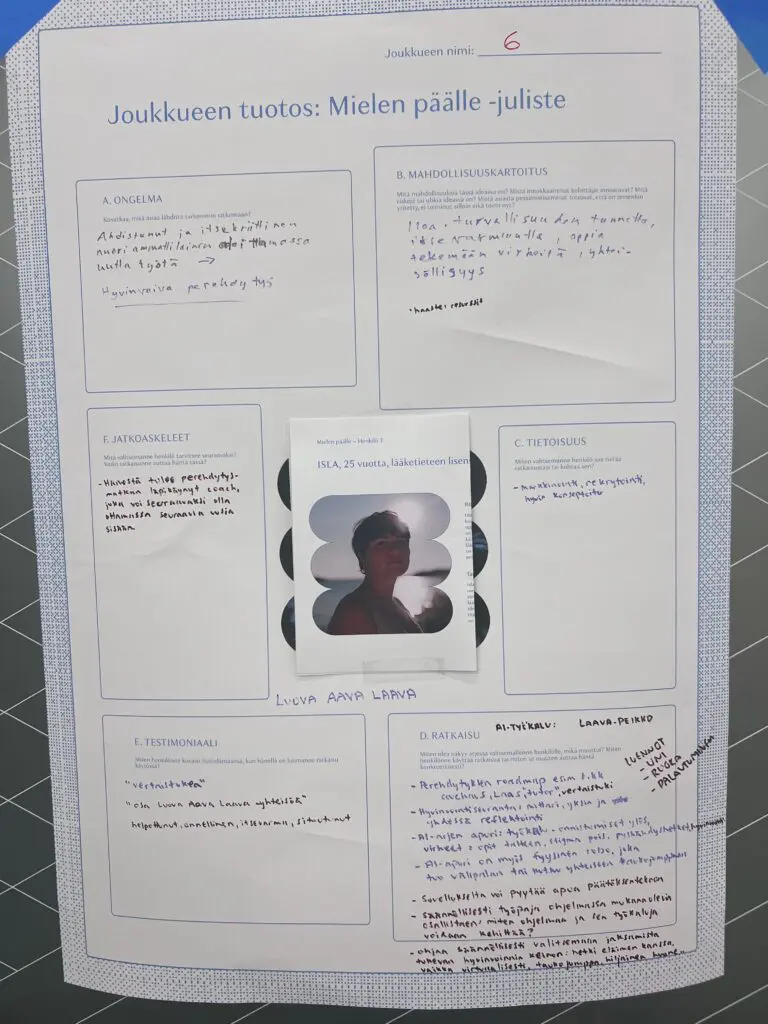 Joukkueen nimi: 6
Joukkueen tuotos: Mielen päälle -juliste
A. ONGELMA
Kuvatkaa, mikä asiaa lähditte
Ahdistunut ja itsekriittinen
nuori ammattilainen aloittamassa
uutta työtä →
Hyvinvoiva perehdytys
B. MAHDOLLISUUSKARTOITUS
Mitä mahdollisuuksia tässä ideassa on?
Iloa, turvallisuuden tunnetta,
itsevarmuutta, oppia
tekemään virheitä, yhtei-
söllisyys
• haaste: resurssit
F. JATKOASKELEET
Mitä valitsemanne henkilö tarvitsee seuraavaksi?
Kuinka ratkaisunne auttaa häntä tässä?
- Hänestä tulee perehdytys-
matkan läpikäynyt coach,
joka voi seuraavaksi olla
ottamassa seuraavia uusia
sisään.
Mielen päälle – Henkilö 3
ISLA, 25 vuotta, lääketieteen lisens
C. TIETOISUUS
Miten valitsemanne henkilö saa tietää
ratkaisustasi tai kohtaa sen?
- Markkinointi, rekrytointi,
hyvin konseptoitu
LUOVA AAVA LAAVA
E. TESTIMONIAALI
"vertaistukea"
"osa Luova Aava Laava yhteisöä"
helpottunut, onnellinen, itsevarma, sitoutunut
AI-TYÖKALU: LAAVA-PEIKKO
D. RATKAISU
LUENNOT
- UNI
- RUOKA
- PALAUTUMINEN
- Perehdytyksen roadmap esim 6 kk
coachaus, "Laasitutor", vertaistuki
- Hyvinvointiseuranta: mittari, yksin ja
yhdessä reflektointi
- AI-arjen apuri: työkalu - onnistumiset ylös,
virheet: opit talteen, stigma pois,
- AI-apuri on myös fyysinen robo, joka
tuo välipalan tai kutsuu yhteiseen taukojumppaan
- Sovellukselta voi pyytää apua päätöksentekoon
- Säännöllisesti työpaja ohjelmassa mukana olevia
osallistaen: miten ohjelmaa ja sen työkaluja
voidaan kehittää?
- Ohjaa säännöllisesti valitsemaan jaksamista
tukevan hyvinvoinnin keinon: hetki eläimen kanssa,
vaikka virtuaalisesti, taukojumppa, hiljainen huone..